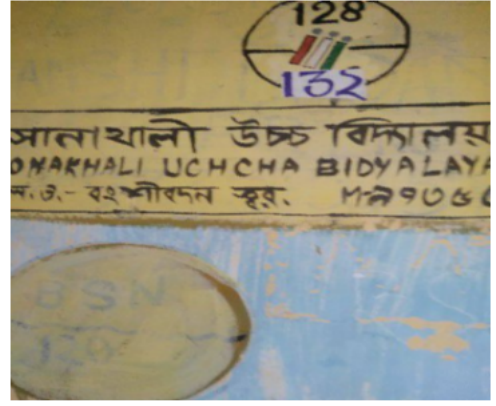 128
132
সোনাখালী উচ্চ বিদ্যালয়
ONAKHALI UCHCHA BIDYALAYA
বংশীবদন
BSN